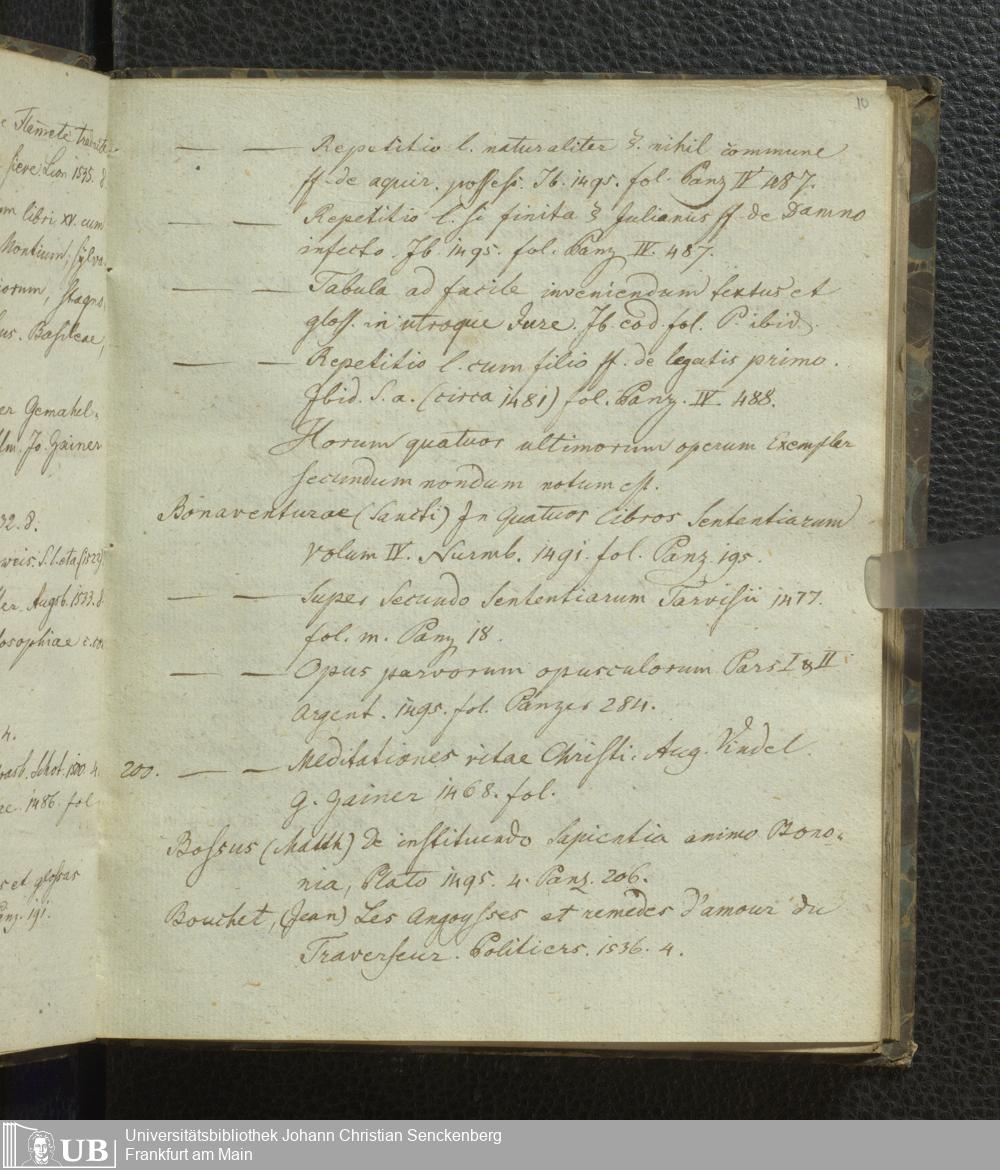 10
e Flamete traduite
sieve. Lion 1535. 8
m libri XV. cum
Montium, Sylva
iorum, Stagno
us. Basileae,
er Gemahel.
lm. Jo. Zainer
32. 8.
weis. S. l. eta (1529)
ler. Augsb. 1533. 8
losophiae c. co
4.
rasb. Schot. 1500. 4
ae. 1486. fol
s et glossas
anz. 191.
— — Repetitio l. naturaliter §. nihil commune
ff. de aquir. possess. Ib. 1495. fol. Panz IV 487.
— — Repetitio l. si finita § Julianus ff. de Damno
infecto. Ib. 1495. fol. Panz IV. 487.
— — Tabula ad facile inveniendum textus et
gloss. in utroque Jure. Ib. eod. fol. P. ibid.
— — Repetitio l. cum filio ff. de legatis primo.
Ibid. S. a. (circa 1481) fol. Panz. IV. 488.
Horum quatuor ultimorum operum Exemplar
secundum nondum notum est.
Bonaventurae (Sancti) In Quatuor Libros Sententiarum
Volum IV. Nurmb. 1491. fol. Panz. 195.
— — Super Secundo Sententiarum Tarvisii 1477.
fol. m. Panz 18.
— — Opus parvorum opusculorum Pars I & II
Argent. 1495. fol. Panzer 284.
200. — — Meditationes vitae Christi. Aug. Vindel
G. Zainer 1468. fol.
Bossus (Matth) De instituendo Sapientia animo Bono-
nia, Plato 1495. 4. Panz. 206.
Bouchet, (Jean) Les Angoysses et remedes d'amour du
Traverseur. Poitiers. 1536. 4.
UB
Universitätsbibliothek Johann Christian Senckenberg
Frankfurt am Main